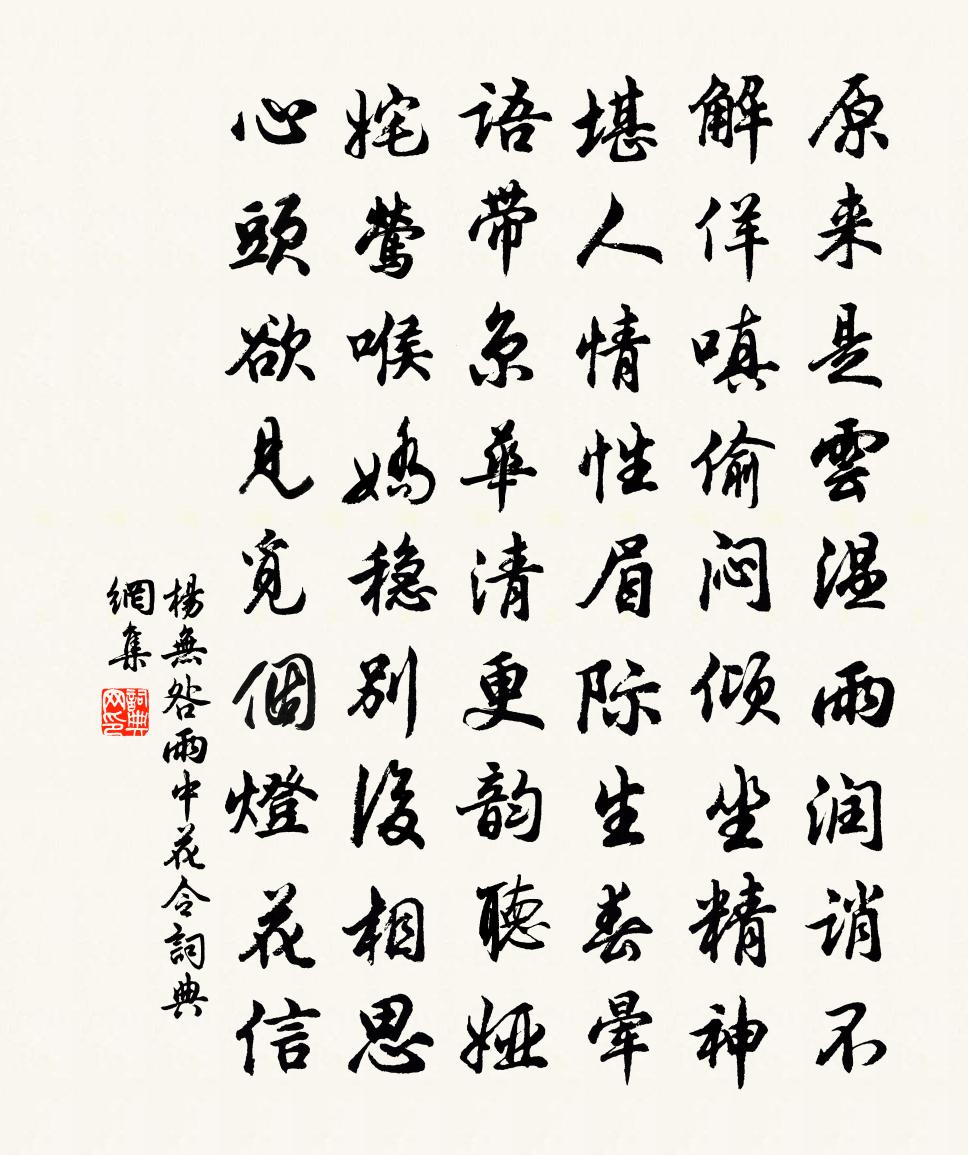 原来是雲温雨润诮不
解佯嗔偷闷倾坐精神
堪人情性眉际生春晕
语带京華清更韵聽娅
姹鶯喉嬌稳别後相思
心頭欲見覓個燈花信
楊無咎雨中花令詞典
網集
詞典
网印